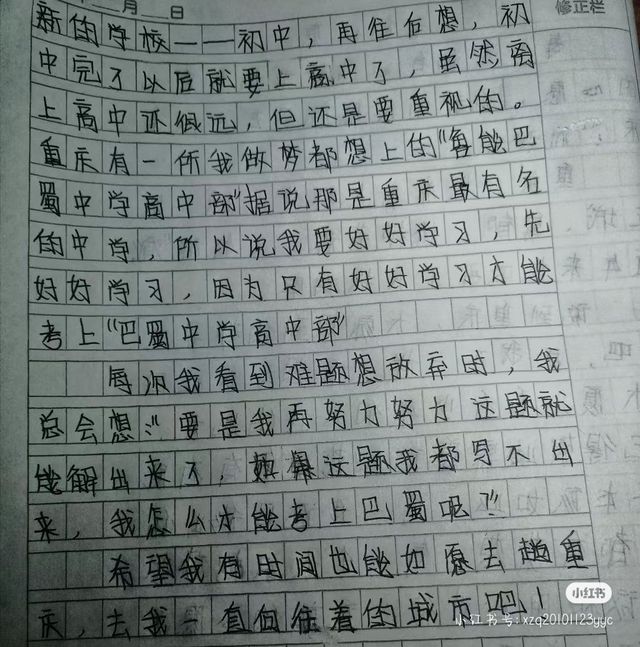 月 日
修正栏
新的学校——初中，再往后想，初
中完了以后就要上高中了，虽然离
上高中还很远，但还是要重视的。
重庆有一所我做梦都想上的“鲁能巴
蜀中学高中部”据说那是重庆最有名
的中学，所以说我要好好学习，先
好好学习，因为只有好好学习才能
考上“巴蜀中学高中部”
每次我看到难题想放弃时，我
总会想：“要是我再努力努力这题就
能解出来了，如果这题我都写不出
来，我怎么才能考上巴蜀呢？”
希望我有时间也能如愿去趟重
庆，去我一直向往着的城市吧！
小红书
小红书号：xzq20101123yyc